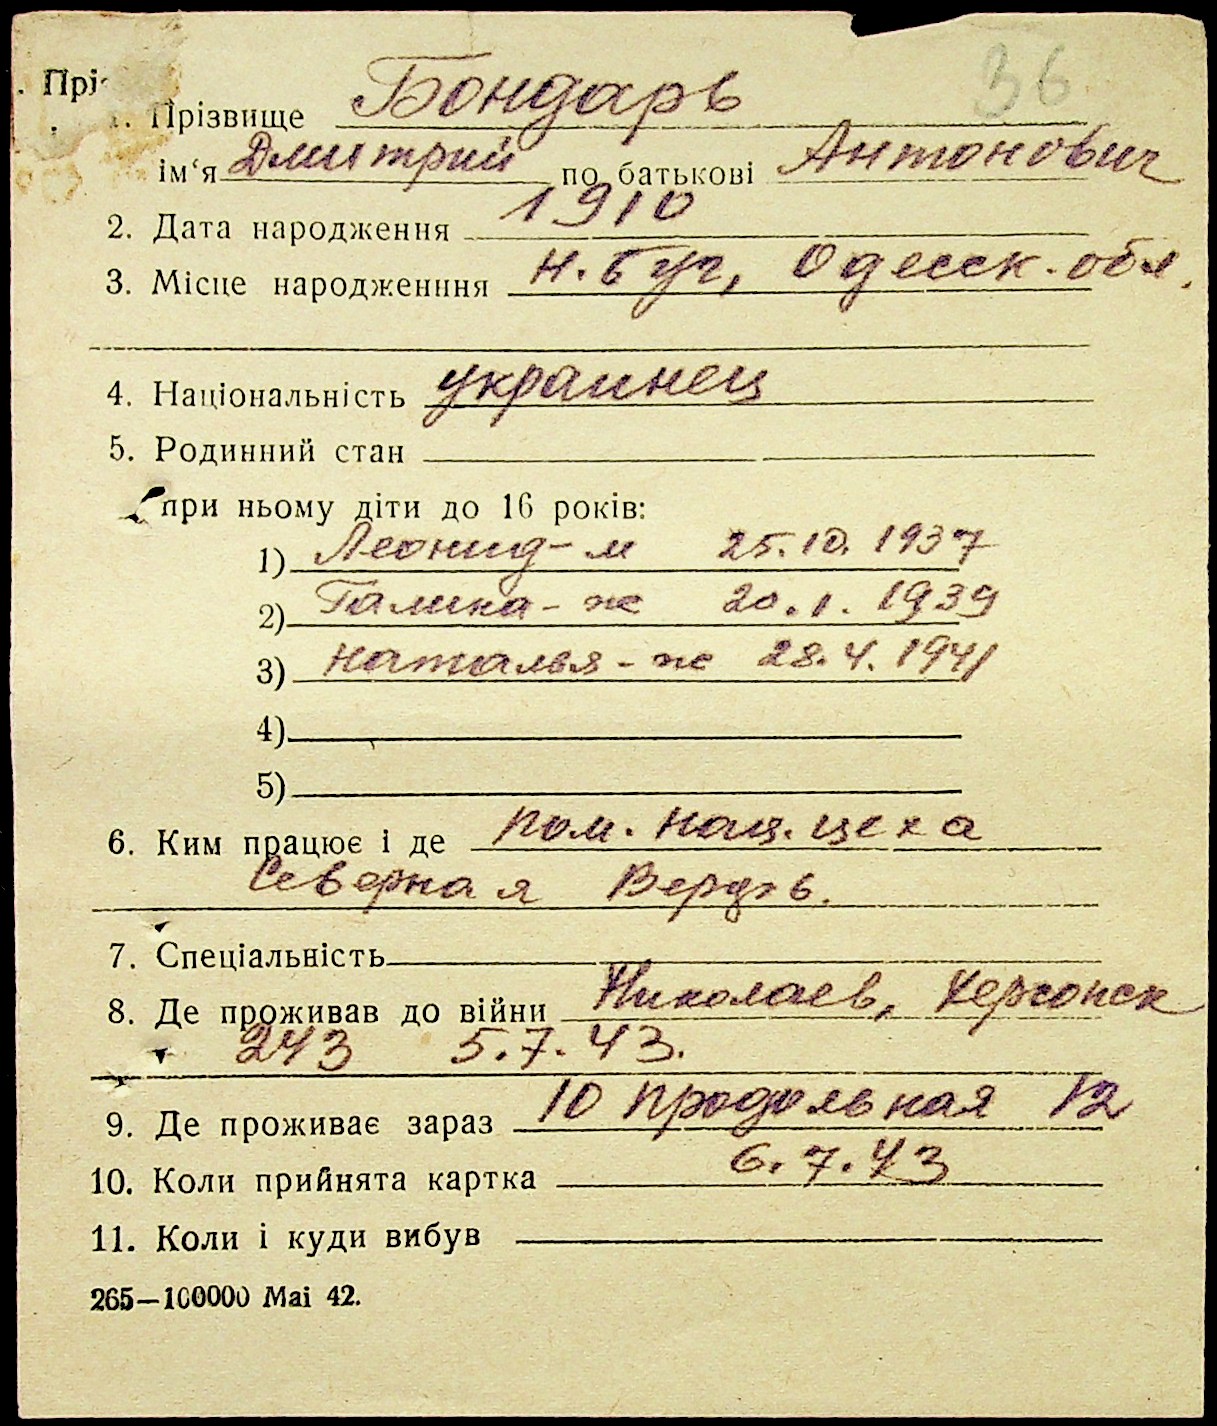 36
. Прі
1. Прізвище Бондарь
ім‘я Дмитрий по батькові Антонович
2. Дата народження 1910
3. Місце народженння Н. Буг, Одесск. обл.
4. Національність украинец
5. Родинний стан
при ньому діти до 16 років:
1) Леонид - м 25.10.1937
2) Галина - ж 20.1.1939
3) Наталья - ж 28.4.1941
4)
5)
6. Ким працює і де пом. нач. цеха
Северная Верфь.
7. Спеціальність
8. Де проживав до війни Николаев, Херсонск
243 5.7.43.
9. Де проживає зараз 10 Продольная 12
10. Коли прийнята картка 6.7.43
11. Коли і куди вибув
265—100000 Mai 42.